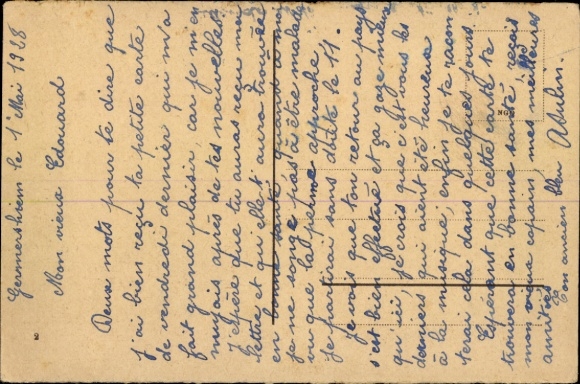 Germersheim le 1er Mai 1928
Mon vieux Edouard
Deux mots pour te dire que
j'ai bien reçu ta petite carte
de vendredi dernier qui m'a
fait grand plaisir, car je m'en
nuyais après de tes nouvelles
J'espère que tu auras reçu ma
lettre et qu'elle t'aura trouvé
en bonne santé, quant à moi
je ne songe pas à être malade
vu que la perme approche
je partirai sans doute le 11.
je vois que ton retour au pays
s'est bien effectué et ça gaze mieux
qu'ici, je crois que c'est vous les
derniers qui aient été heureux
à la musique, enfin je te racon
terai cela dans quelques jours.
Espérant que cette carte te
trouvera en bonne santé, reçois
mon vieux copain, mes meilleures
amitiés
Ton ancien bleu